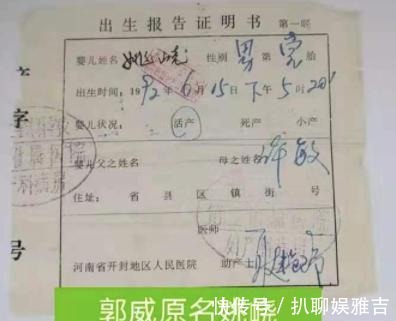 出生报告证明书 第一联
婴儿姓名 姚晓 性别 男 第 壹 胎
出生时间:1992年6月15日下午5时20
婴儿状况: 活产 死产 小产
婴儿父之姓名 母之姓名 许敏
住址: 省 县 区 镇 街 号
医师
河南省开封地区人民医院 助产士
字
号
郭威原名姚晓
快传号/扒聊娱雅吉